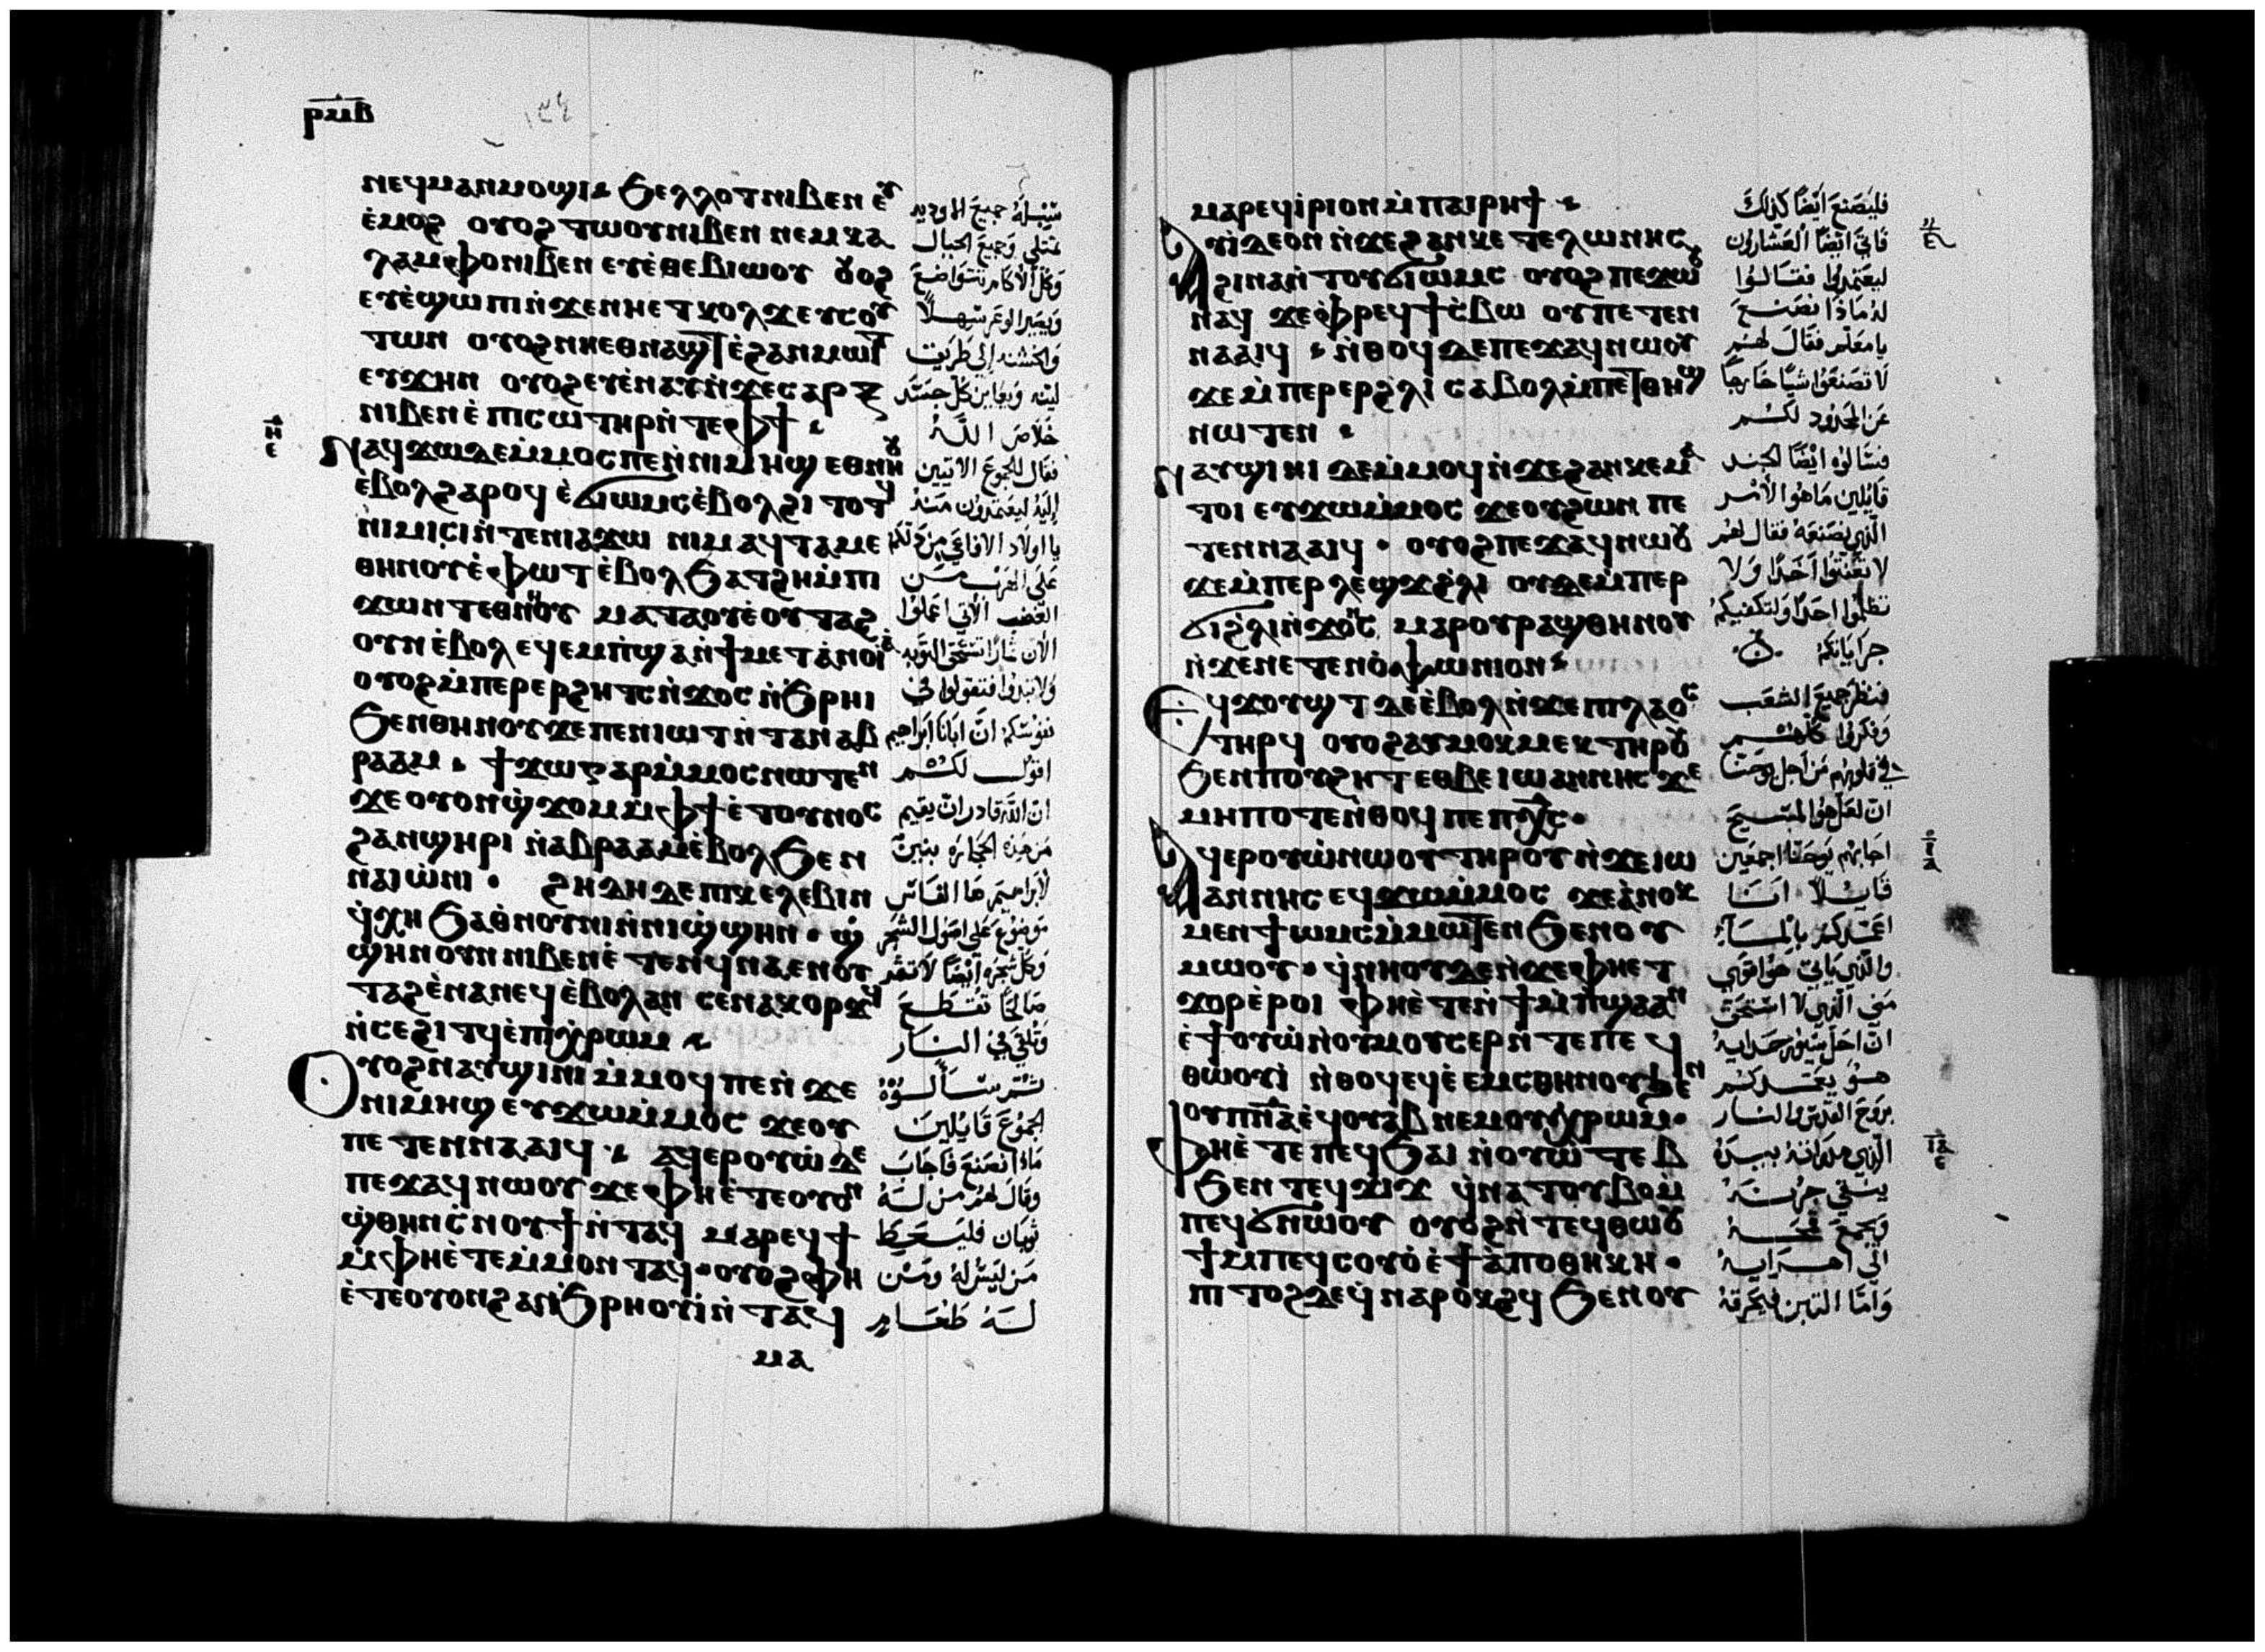 ⲣⲙⲃ
ⲛⲉϥⲙⲁⲛⲙⲟϣⲓ ϧⲉⲗⲗⲟⲧ ⲛⲓⲃⲉⲛ ⲉⲩ
ⲉ̀ⲙⲟϩ ⲟⲩⲟϩ ⲧⲱⲟⲩ ⲛⲓⲃⲉⲛ ⲛⲉⲙ ⲕⲁ
ⲗⲁⲙⲫⲟ ⲛⲓⲃⲉⲛ ⲉⲩⲉ̀ⲑⲉⲃⲓⲱⲟⲩ ⲟⲩⲟϩ
ⲉⲩⲉ̀ϣⲱⲡⲓ ⲛ̀ϫⲉ ⲛⲏⲉⲧⲕⲟⲗϫ ⲉⲩⲥⲟⲩ
ⲧⲱⲛ ⲟⲩⲟϩ ⲛⲏⲉⲑⲛⲁϣⲧ ⲉ̀ϩⲁⲛⲙⲱⲓⲧ
ⲉⲩϫⲏⲛ ⲟⲩⲟϩ ⲉⲩⲉ̀ⲛⲁⲩ ⲛ̀ϫⲉ ⲥⲁⲣⲝ
ⲛⲓⲃⲉⲛ ⲉ̀ⲡⲓⲥⲱⲧⲏⲣ ⲛ̀ⲧⲉ ⲫϯ
ⲛⲁϥϫⲱ ⲇⲉ ⲙ̀ⲙⲟⲥ ⲡⲉ ⲛ̀ⲛⲓⲙⲏϣ ⲉⲑⲛⲏⲟⲩ
ⲉ̀ⲃⲟⲗ ϩⲁⲣⲟϥ ⲉ̀ϭⲓⲱⲙⲥ ⲉ̀ⲃⲟⲗϩⲓⲧⲟⲧϥ
ⲛⲓⲙⲓⲥⲓ ⲛ̀ⲧⲉ ⲛⲓⲁϫⲱ ⲛⲓⲙ ⲁϥⲧⲁⲙⲉ
ⲑⲏⲛⲟⲩ ⲉ̀ⲫⲱⲧ ⲉ̀ⲃⲟⲗ ϧⲁⲧϩⲏ ⲙ̀ⲡⲓ
ϫⲱⲛⲧ ⲉⲑⲛⲏⲟⲩ ⲙⲁⲧⲁⲟⲩⲉ ⲟⲩⲧⲁϩ
ⲟⲩⲛ ⲉ̀ⲃⲟⲗ ⲉϥⲉⲙⲡ̀ϣⲁ ⲛ̀ϯⲙⲉⲧⲁⲛⲟⲓⲁ
ⲟⲩⲟϩ ⲙ̀ⲡⲉⲣⲉⲣϩⲏⲧⲥ ⲛ̀ϫⲟⲥ ⲛ̀ϧⲣⲏⲓ
ϧⲉⲛ ⲑⲏⲛⲟⲩ ϫⲉ ⲡⲉⲛⲓⲱⲧ ⲛ̀ⲧⲁⲛ ⲁⲃ
ⲣⲁⲁⲙ ϯϫⲱ ⲅⲁⲣ ⲙ̀ⲙⲟⲥ ⲛⲱⲧⲉⲛ
ϫⲉ ⲟⲩⲟⲛ ϣ̀ϫⲟⲙ ⲙ̀ⲫϯ ⲉ̀ⲧⲟⲩⲛⲟⲥ
ϩⲁⲛϣⲏⲣⲓ ⲛ̀ⲁⲃⲣⲁⲁⲙ ⲉ̀ⲃⲟⲗ ϧⲉⲛ
ⲛⲁⲓⲱ̀ⲛⲓ ϩⲏⲇⲏ ⲇⲉ ⲡⲓⲕⲉⲗⲉⲃⲓⲛ
ϥ̀ⲭⲏ ϧⲁ ⲑⲛⲟⲩⲛⲓ ⲛ̀ⲛⲓϣ̀ϣⲏⲛ ϣ̀
ϣⲏⲛ ⲟⲩⲛ ⲛⲓⲃⲉⲛ ⲉ̀ⲧⲉⲛϥⲛⲁⲉⲛⲟⲩ
ⲧⲁϩ ⲉ̀ⲛⲁⲛⲉϥ ⲉ̀ⲃⲟⲗ ⲁⲛ ⲥⲉⲛⲁⲕⲟⲣϫϥ
ⲛ̀ⲥⲉϩⲓⲧϥ ⲉ̀ⲡⲓⲭ̀ⲣⲱⲙ
ⲟⲩⲟϩ ⲛⲁⲩϣⲓⲛⲓ ⲙ̀ⲙⲟϥ ⲡⲉ ⲛ̀ϫⲉ
ⲛⲓⲙⲏϣ ⲉⲩϫⲱ ⲙ̀ⲙⲟⲥ ϫⲉ ⲟⲩ
ⲡⲉⲧⲉⲛⲛⲁⲁⲓϥ ⲁϥⲉⲣⲟⲩⲱ̀ ⲇⲉ
ⲡⲉϫⲁϥ ⲛⲱⲟⲩ ϫⲉ ⲫⲏⲉ̀ⲧⲉ ⲟⲩⲟⲛ
ϣ̀ⲑⲏⲛ ⲥ̀ⲛⲟⲩϯ ⲛ̀ⲧⲁϥ ⲙⲁⲣⲉϥϯ
ⲙ̀ⲫⲏⲉ̀ⲧⲉ ⲙ̀ⲙⲟⲛ ⲧⲁϥ ⲟⲩⲟϩ ⲫⲏ
ⲉ̀ⲧⲉ ⲟⲩⲟⲛ ϩⲁⲛϧ̀ⲣⲏⲟⲩⲓ̀ ⲛ̀ⲧⲁϥ
ⲙⲁ
سبيله جميع الاوديه
تمتلى وجميع الجبال
وكل الاكام تتواضع
ويصير الوعر سهلاً
والخشنه الى طريق
لينه ويعاين كل جسد
خلاص الله
فقال للجموع الاتيين
اليه ليعتمدون منه
يا اولاد الافاعي من دلكم
على الهرب من
الغضب الاتي اعملوا
الان ثمارا تستحق التوبه
ولا تبدوا فتقولوا في
نفوسكم ان ابانا ابراهيم
اقول لكم
ان الله قادر ان يقيم
من هذه الحجاره بنين
لابراهيم ها الفاس
موضوع على اصول الشجر
وكل شجره ايضا لا تثمر
صالحا تقطع
وتلقى في النار
ثم سألوه
الجموع قايلين
ماذا نصنع فاجاب
وقال لهم من له
ثوبان فليعط
من ليس له ومن
له طعام
ⲙⲁⲣⲉϥⲓ̀ⲣⲓ ⲟⲛ ⲙ̀ⲡⲁⲓⲣⲏϯ
ⲁⲩⲓ̀ ⲇⲉ ⲟⲛ ⲛ̀ϫⲉ ϩⲁⲛⲕⲉⲧⲉⲗⲱⲛⲏⲥ
ϩⲓⲛⲁ ⲛ̀ⲧⲟⲩϭⲓⲱⲙⲥ ⲟⲩⲟϩ ⲡⲉϫⲱⲟⲩ
ⲛⲁϥ ϫⲉ ⲫⲣⲉϥϯⲥ̀ⲃⲱ ⲟⲩ ⲡⲉⲧⲉⲛ
ⲛⲁⲁⲓϥ ⲛ̀ⲑⲟϥ ⲇⲉ ⲡⲉϫⲁϥ ⲛⲱⲟⲩ
ϫⲉ ⲙ̀ⲡⲉⲣⲉⲣϩ̀ⲗⲓ ⲥⲁⲃⲟⲗ ⲙ̀ⲡⲉⲧⲑⲏϣ
ⲛⲱⲧⲉⲛ
ⲛⲁⲩϣⲓⲛⲓ ⲇⲉ ⲙ̀ⲙⲟϥ ⲛ̀ϫⲉ ϩⲁⲛⲕⲉⲙⲁ
ⲧⲟⲓ ⲉⲩϫⲱ ⲙ̀ⲙⲟⲥ ϫⲉ ⲟⲩ ϩⲱⲛ ⲡⲉ
ⲧⲉⲛⲛⲁⲁⲓϥ ⲟⲩⲟϩ ⲡⲉϫⲁϥ ⲛⲱⲟⲩ
ϫⲉ ⲙ̀ⲡⲉⲣⲗⲉϣϫ ϩ̀ⲗⲓ ⲟⲩⲇⲉ ⲙ̀ⲡⲉⲣ
ϭⲓ ϩ̀ⲗⲓ ⲛ̀ϫⲟⲛⲥ ⲙⲁⲣⲟⲩⲣⲁϣⲑⲏⲛⲟⲩ
ⲛ̀ϫⲉ ⲛⲉⲧⲉⲛⲟ̀ⲯⲱⲛⲓⲟⲛ
ⲉϥϫⲟⲩϣⲧ ⲇⲉ ⲉ̀ⲃⲟⲗ ⲛ̀ϫⲉ ⲡⲓⲗⲁⲟⲥ
ⲧⲏⲣϥ ⲟⲩⲟϩ ⲁⲩⲙⲟⲕⲙⲉⲕ ⲧⲏⲣⲟⲩ
ϧⲉⲛ ⲡⲟⲩϩⲏⲧ ⲉⲑⲃⲉ ⲓⲱⲁⲛⲛⲏⲥ ϫⲉ
ⲙⲏⲡⲟⲧⲉ ⲛ̀ⲑⲟϥ ⲡⲉ ⲡⲭ̅ⲥ̅
ⲁϥⲉⲣⲟⲩⲱ̀ ⲛⲱⲟⲩ ⲧⲏⲣⲟⲩ ⲛ̀ϫⲉ ⲓⲱ
ⲁⲛⲛⲏⲥ ⲉϥϫⲱ ⲙ̀ⲙⲟⲥ ϫⲉ ⲁ̀ⲛⲟⲕ
ⲙⲉⲛ ϯⲱⲙⲥ ⲙ̀ⲙⲱⲧⲉⲛ ϧⲉⲛ ⲟⲩ
ⲙⲱⲟⲩ ϥ̀ⲛⲏⲟⲩ ⲇⲉ ⲛ̀ϫⲉ ⲫⲏⲉⲧ
ϫⲟⲣ ⲉ̀ⲣⲟⲓ ⲫⲏⲉ̀ⲧⲉⲛ ϯⲙ̀ⲡ̀ϣⲁ ⲁⲛ
ⲉ̀ϯⲟⲩⲱ̀ ⲛ̀ⲟⲩⲙⲟⲩⲥⲉⲣ ⲛ̀ⲧⲉ ⲡⲉϥ
ⲑⲱⲟⲩⲓ̀ ⲛ̀ⲑⲟϥ ⲉϥⲉ̀ⲉⲙⲥⲑⲏⲛⲟⲩ ϧⲉⲛ
ⲟⲩⲡ̅ⲛ̅ⲁ̅ ⲉ̀ϥⲟⲩⲁⲃ ⲛⲉⲙ ⲟⲩⲭ̀ⲣⲱⲙ
ⲫⲏⲉ̀ⲧⲉ ⲡⲉϥϧⲁⲓ ⲛ̀ⲟⲩⲱ̀ⲧⲉⲃ
ϧⲉⲛ ⲧⲉϥϫⲓϫ ϥ̀ⲛⲁⲧⲟⲩⲃⲟ ⲙ̀
ⲡⲉϥϭⲛⲱⲟⲩ ⲟⲩⲟϩ ⲛ̀ⲧⲉϥⲑⲱⲟⲩ
ϯ ⲙ̀ⲡⲉϥⲥⲟⲩⲟ̀ ⲉ̀ϯⲁ̀ⲡⲟⲑⲏⲕⲏ
ⲡⲓⲧⲟϩ ⲇⲉ ϥ̀ⲛⲁⲣⲟⲕϩϥ ϧⲉⲛ ⲟⲩ
فليصنع ايضا كذلك
فاتى ايضا العشارون
ليعتمدوا فقالوا
له ماذا نصنع
يا معلم فقال لهم
لا تصنعوا شيا خارجا
عن المحدود لكم
فسالوه ايضا الجند
قايلين ما هو الامر
الذي نصنعه فقال لهم
لا تعنتوا احدا ولا
تظلموا احدا ولتكفيكم
جراياتكم
فنظر جميع الشعب
وفكروا كلهم
في قلوبهم من اجل يوحنا
ان لعل هو المسيح
اجابهم يوحنا اجمعين
قايلاً انا
اعمدكم بالماء
والذي ياتي هو اقوى
مني الذي لا استحق
ان احل سيور حذايه
هو يعمدكم
بروح القدس والنار
الذي رفشه بيده
ينقي جرنه
ويجمع قمحه
الى اهرايه
واما التبن فيحرقه